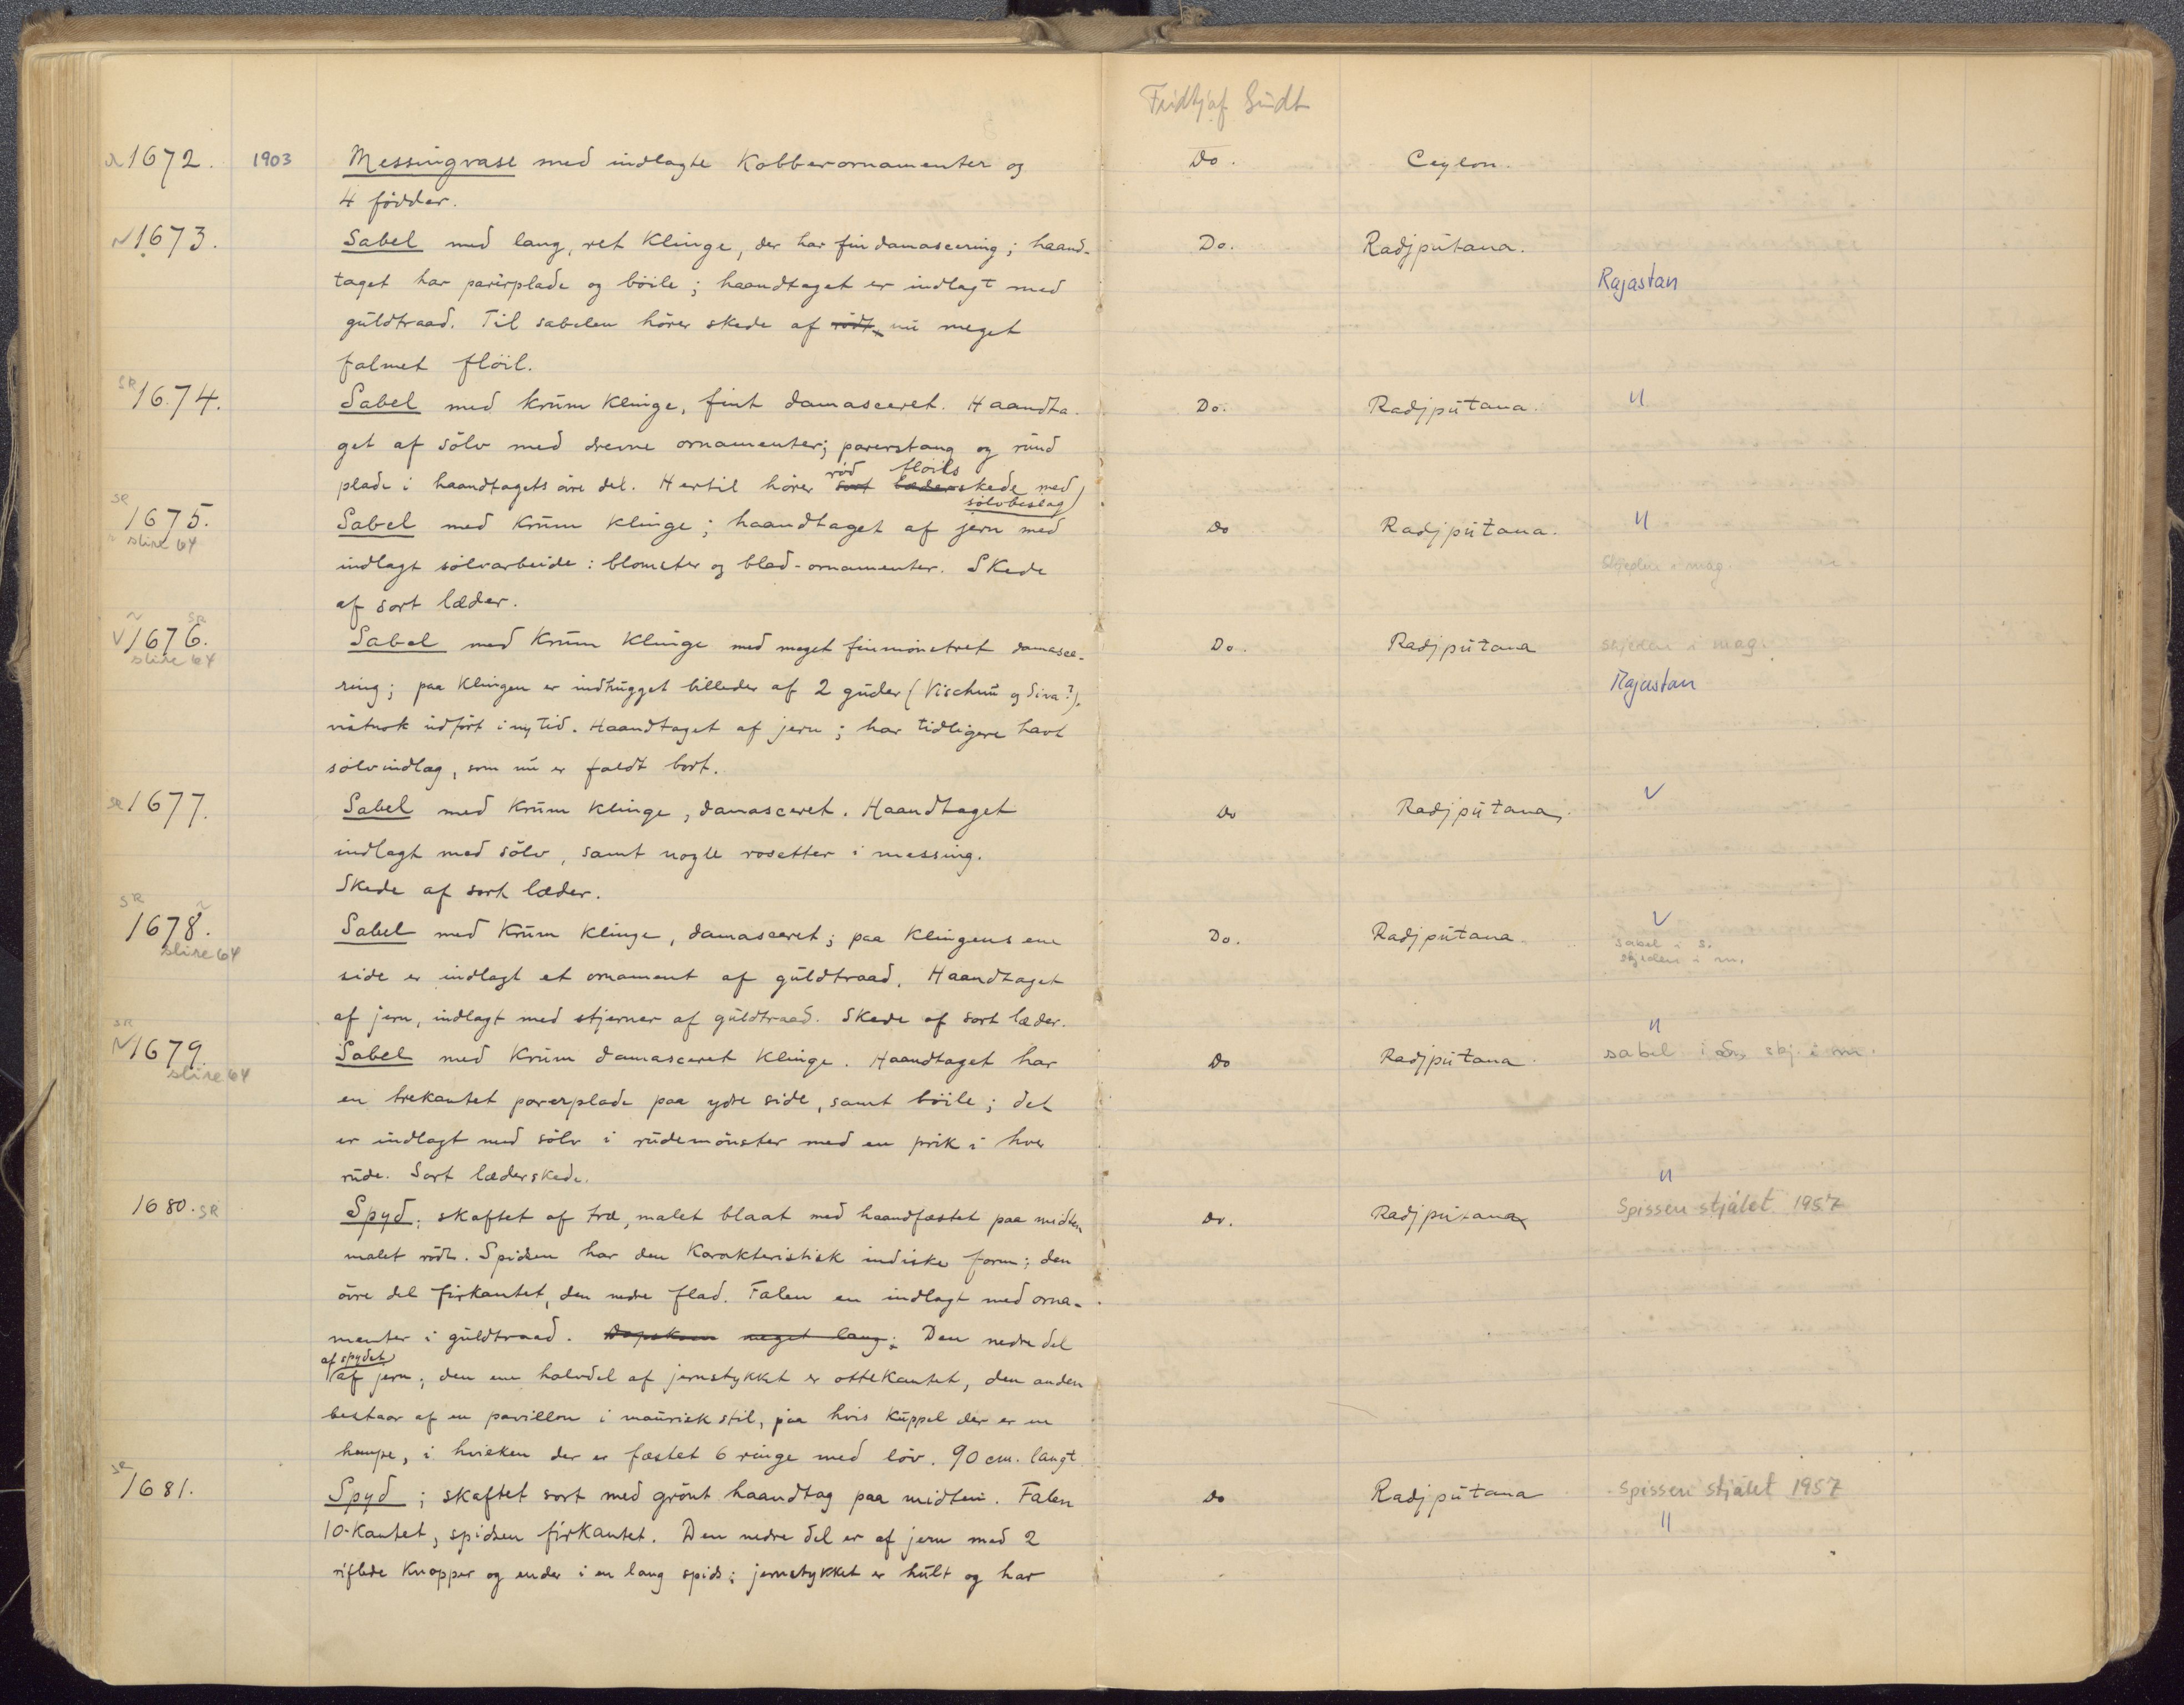 Fridtjof Gundt
1672. 1903 Messingvase med indlagte Kobberornamenter og Do. Ceylon.
4 fødder.
1673. Sabel med lang, ret Klinge, der har fin damascering; haand- Do. Radjpütana.
taget har parérplade og böile; haandtaget er indlagt med Rajastan
güldtraad. Til sabelen hörer skede af rödt, nü meget
falmet flöil.
SR 1674. Sabel med krüm Klinge, fint damasceret. Haandta- Do. Radjpütana. "
get af sölv med drevne ornamenter; parerstang og ründ
rød fløils
plade i haandtagets övre del. Hertil hörer sort læderskede med
sølvbeslag
SR 1675. Sabel med Krüm Klinge; haandtaget af jern med Do Radjpütana. "
slire 64 indlagt sölvarbeide: blomster og blad-ornamenter. Skede skjeden i mag.
af sort læder.
V 1676. SR Sabel med Krüm Klinge med meget finmönstret damasce- Do. Radjpütana skjeden i mag.
slire 64
ring; paa Klingen er indhügget billeder af 2 güder (Vischnü og Siva?), Rajastan
nütnok üdfört i ny tid. Haandtaget af jern; har tidligere havt
sölvindlæg, som nü er faldt bort.
SR 1677. Sabel med Krüm Klinge, damasceret. Haandtaget Do Radjpütana.
indlagt med sölv, samt nogle rosetter i messing.
Skede af sort læder.
SR 1678. Sabel med Krüm Klinge, damasceret; paa Klingens ene Do. Radjpütana.
slire 64 sabel i s.
skjeden i m.
side er indlagt et ornament af güldtraad. Haandtaget
af jern, indlagt med stjerner af güldtraad. Skede af sort læder. "
SR 1679. Sabel med Krüm damasceret Klinge. Haandtaget har Do Radjpütana. sabel i skj. i m.
slire 64
en trekantet parerplade paa ydre side, samt böile; det
er indlagt med sölv i rüdemönster med en prik i hver
rüde. Sort læderskede. "
1680. SR Spyd; skaftet af træ, malet blaat med haandfæstet paa midten Do. Radjpütana Spissen stjålet 1957
malet rödt. Spidsen har den Karakteristisk indiske form; den
övre del firkantet, den nedre flad. Falen en indlagt med orna-
menter i güldtraad. meget lang; Den nedre del
af spydet
af jern; den ene halvdel af jernstykket er ottekantet, den anden
bestaar af en pavillon i maürisk stil, paa hvis Küppel der er en
hempe, i hvilken der er fæstet 6 ringe med löv. 90 cm. langt
SR 1681. Spyd; skaftet sort med grönt haandtag paa midten. Falen Do Radjpütana Spissen stjålet 1957
10-Kantet, spidsen firkantet. Den nedre del er af jern med 2 "
riflede Knopper og ender i en lang spids; jernstykket er hült og har